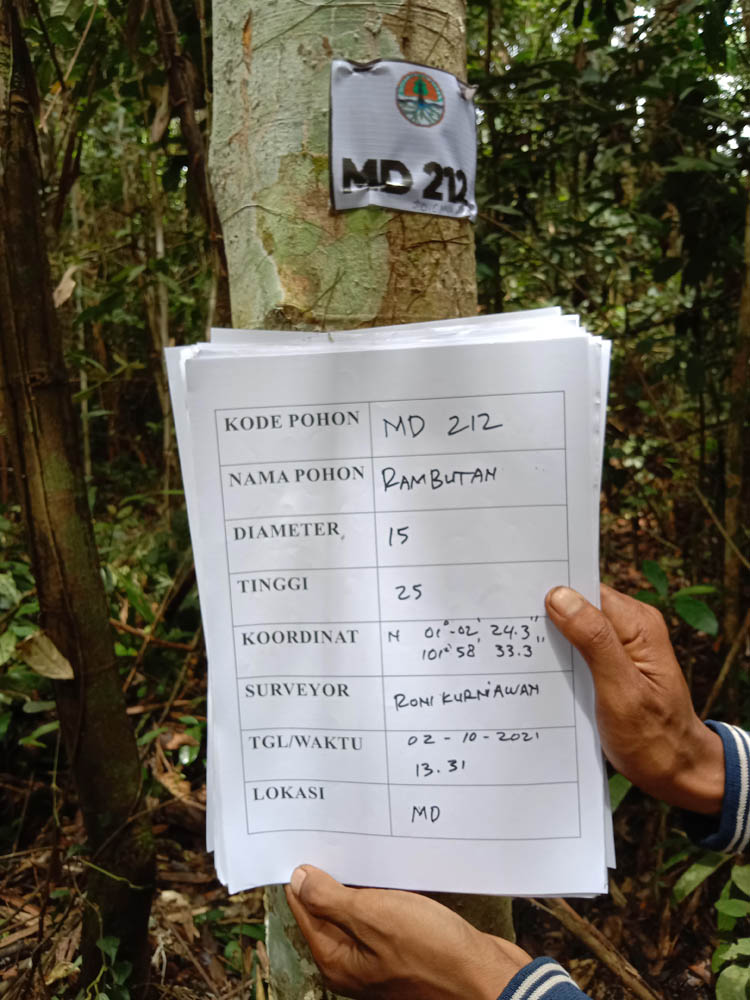 MD 212
KODE POHON MD 212
NAMA POHON RAMBUTAN
DIAMETER 15
TINGGI 25
KOORDINAT N 01° - 02' 24.3"
101° 58' 33.3"
SURVEYOR RONI KURNIAWAN
TGL/WAKTU 02 - 10 - 2021
13.31
LOKASI MD